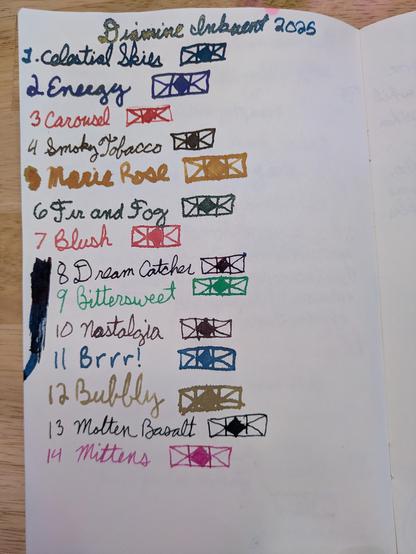 Diamine Inkvent 2025
1. Celestial Skies
2 Energy
3 Carousel
4 Smoky Tobacco
5 Marie Rose
6 Fir and Fog
7 Blush
8 Dream Catcher
9 Bittersweet
10 Nostalgia
11 Brrr!
12 Bubbly
13 Molten Basalt
14 Mittens